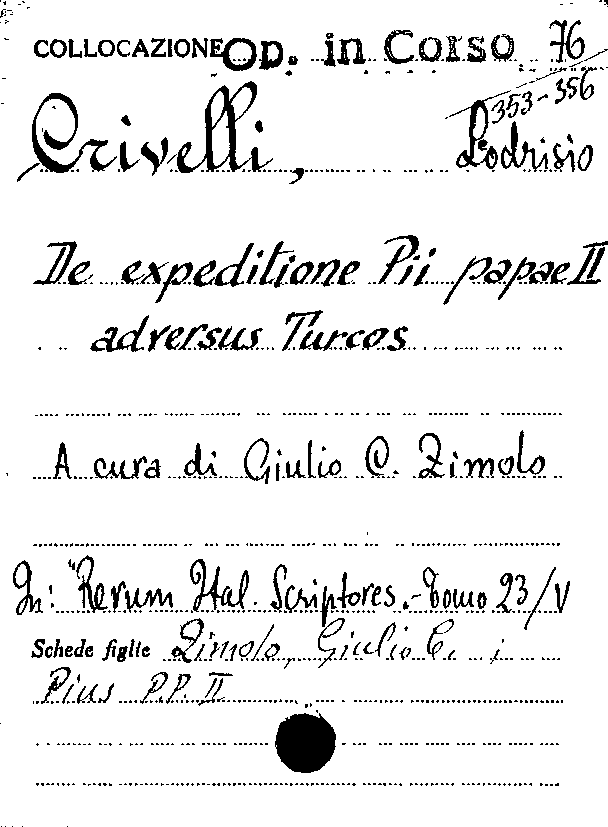 COLLOCAZIONE Op. in Corso 76
353-356
Crivelli, Lodrisio
De expeditione Pii papae II
adversus Turcos
A cura di Giulio C. Zimolo
In: "Rerum Ital. Scriptores.- Tomo 23/V
Schede figlie Zimolo, Giulio C. ;
Pius P.P. II